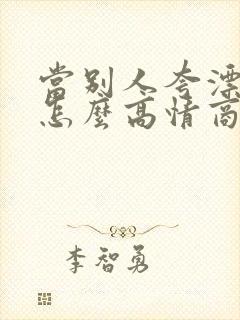 當別人夸漂
怎麼高情商
李智勇